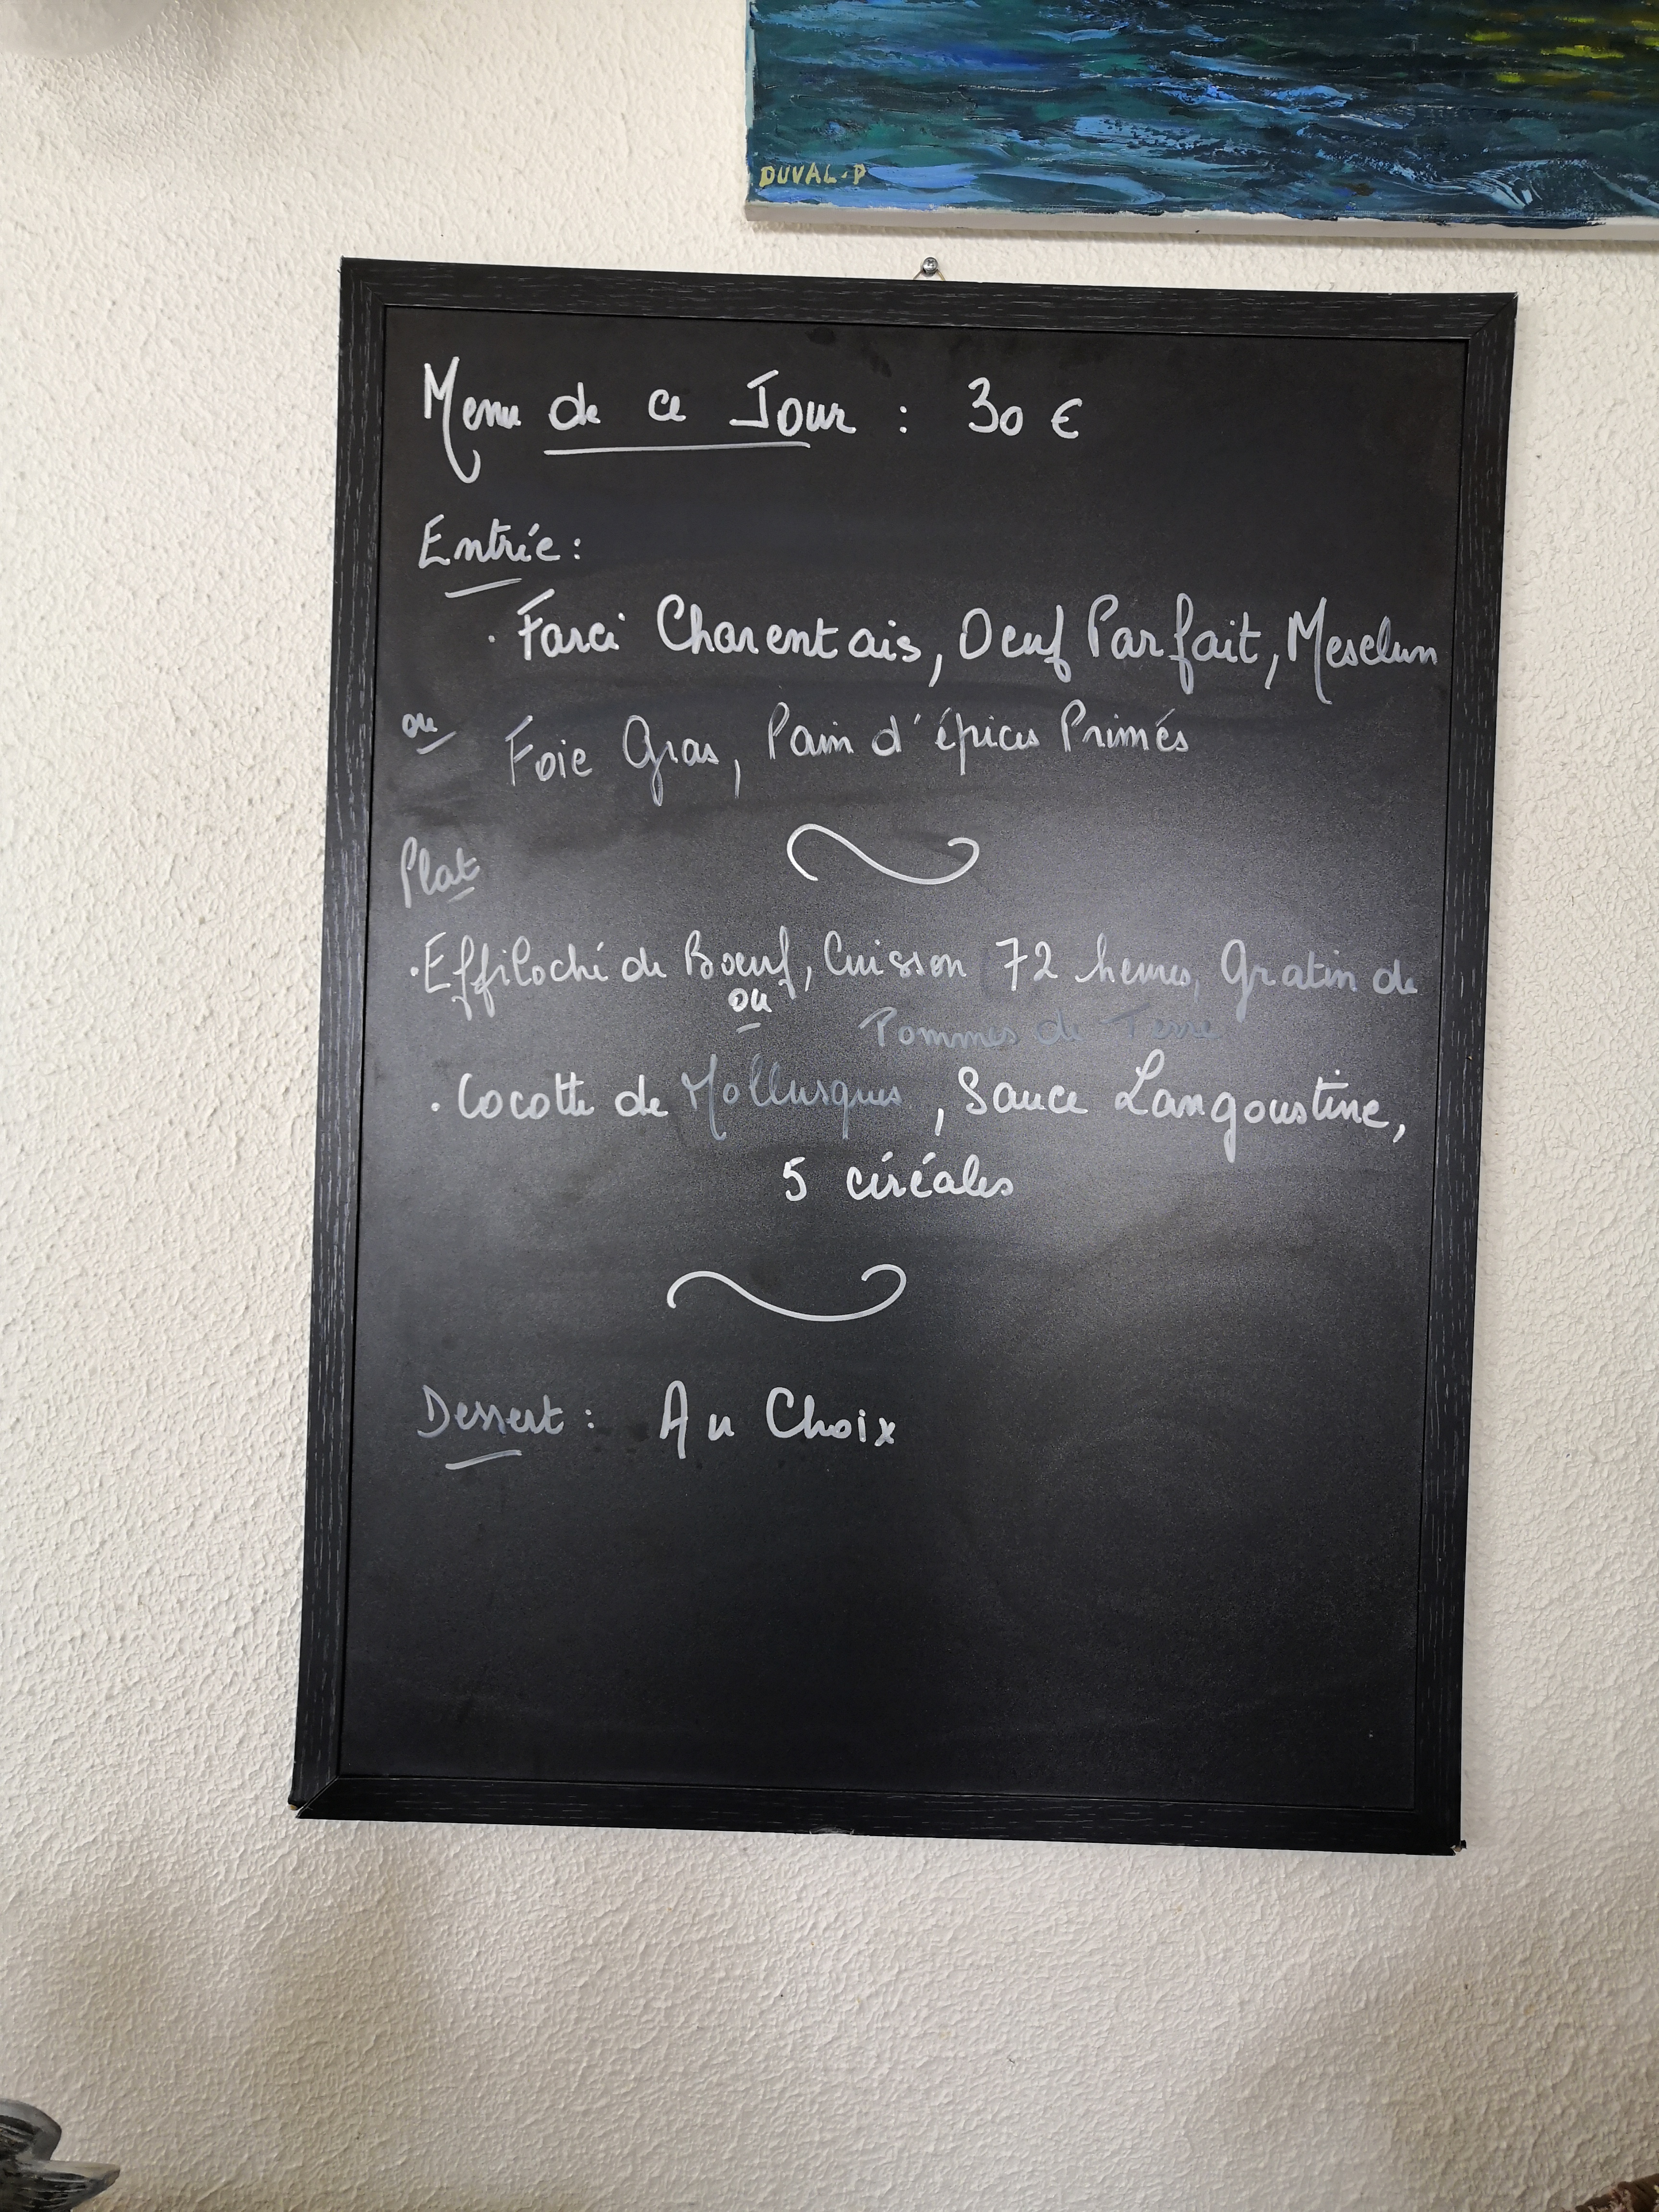 DUVAL.P
Menu de ce Jour : 30 €
Entrée :
· Farci Charentais, Oeuf Parfait, Mesclun
ou Foie Gras, Pain d'épices Primés
Plat
· Effiloché de Boeuf, Cuisson 72 heures, Gratin de
ou
Pommes de Terre
· Cocotte de Mollusques, Sauce Langoustine,
5 céréales
Dessert : Au Choix